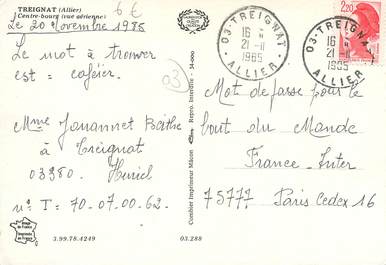 TREIGNAT (Allier)
Centre-bourg (vue aérienne)
6 €
Le 20 Novembre 1985
Le mot à trouver
est = caféier.
03
Mme Jouannet Berthe
à Treignat
03380. Huriel
n° T = 70-07.00-62.
3.99.78.4249
03.288
Combier Imprimeur Mâcon
Repro. Interdite - 34-000
03-TREIGNAT
16 H
21-11
1985
ALLIER
03-TREIGNAT
16 H
21-11
1985
ALLIER
2,20
Mot de passe pour le
bout du Monde
France-Inter
75777 Paris Cedex 16